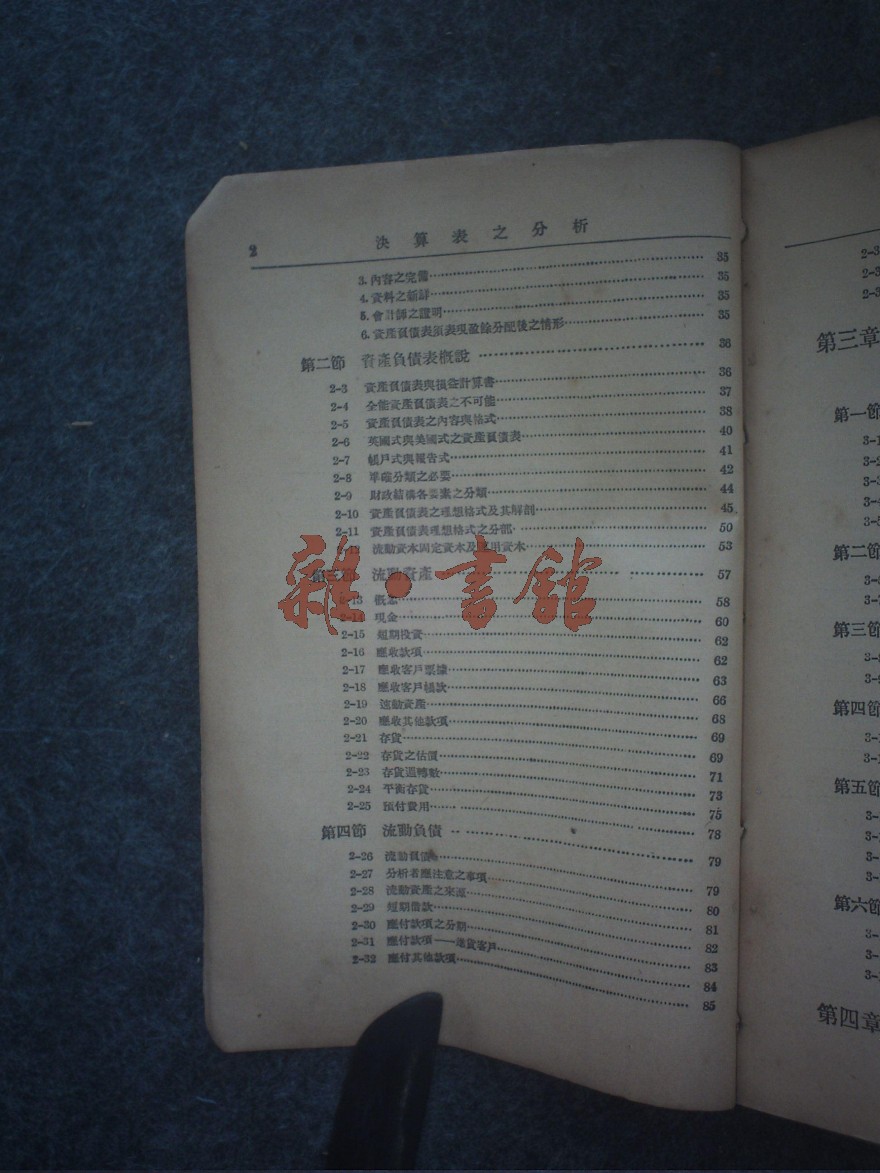 2 決算表之分析
3.內容之完備 35
4.資料之新鮮 35
5.會計師之證明 35
6.資產負債表須表現盈餘分配後之情形 35
第二節 資產負債表概說 36
2-3 資產負債表與損益計算書 36
2-4 全能資產負債表之不可能 37
2-5 資產負債表之內容與格式 38
2-6 英國式與美國式之資產負債表 40
2-7 帳戶式與報告式 41
2-8 準確分類之必要 42
2-9 財政結構各要素之分類 44
2-10 資產負債表之理想格式及其解剖 45
2-11 資產負債表理想格式之分部 50
2-12 流動資本固定資本及運用資本 53
第三節 流動資產 57
2-13 概念 58
2-14 現金 60
2-15 短期投資 62
2-16 應收款項 62
2-17 應收客戶票據 63
2-18 應收客戶帳款 66
2-19 速動資產 68
2-20 應收其他款項 69
2-21 存貨 69
2-22 存貨之估價 71
2-23 存貨週轉數 73
2-24 平衡存貨 75
2-25 預付費用 78
第四節 流動負債 79
2-26 流動負債 79
2-27 分析者應注意之事項 80
2-28 流動資產之來源 81
2-29 短期借款 82
2-30 應付款項之分期 83
2-31 應付款項——進貨客戶 84
2-32 應付其他款項 85
雜·書館
2-3
2-3
2-3
第三章
第一節
3-1
3-2
3-3
3-4
3-5
第二節
3-6
3-7
第三節
第四節
3-1
3-1
第五節
3-1
3-1
3-1
3-1
第六節
3-
3-
3-
第四章